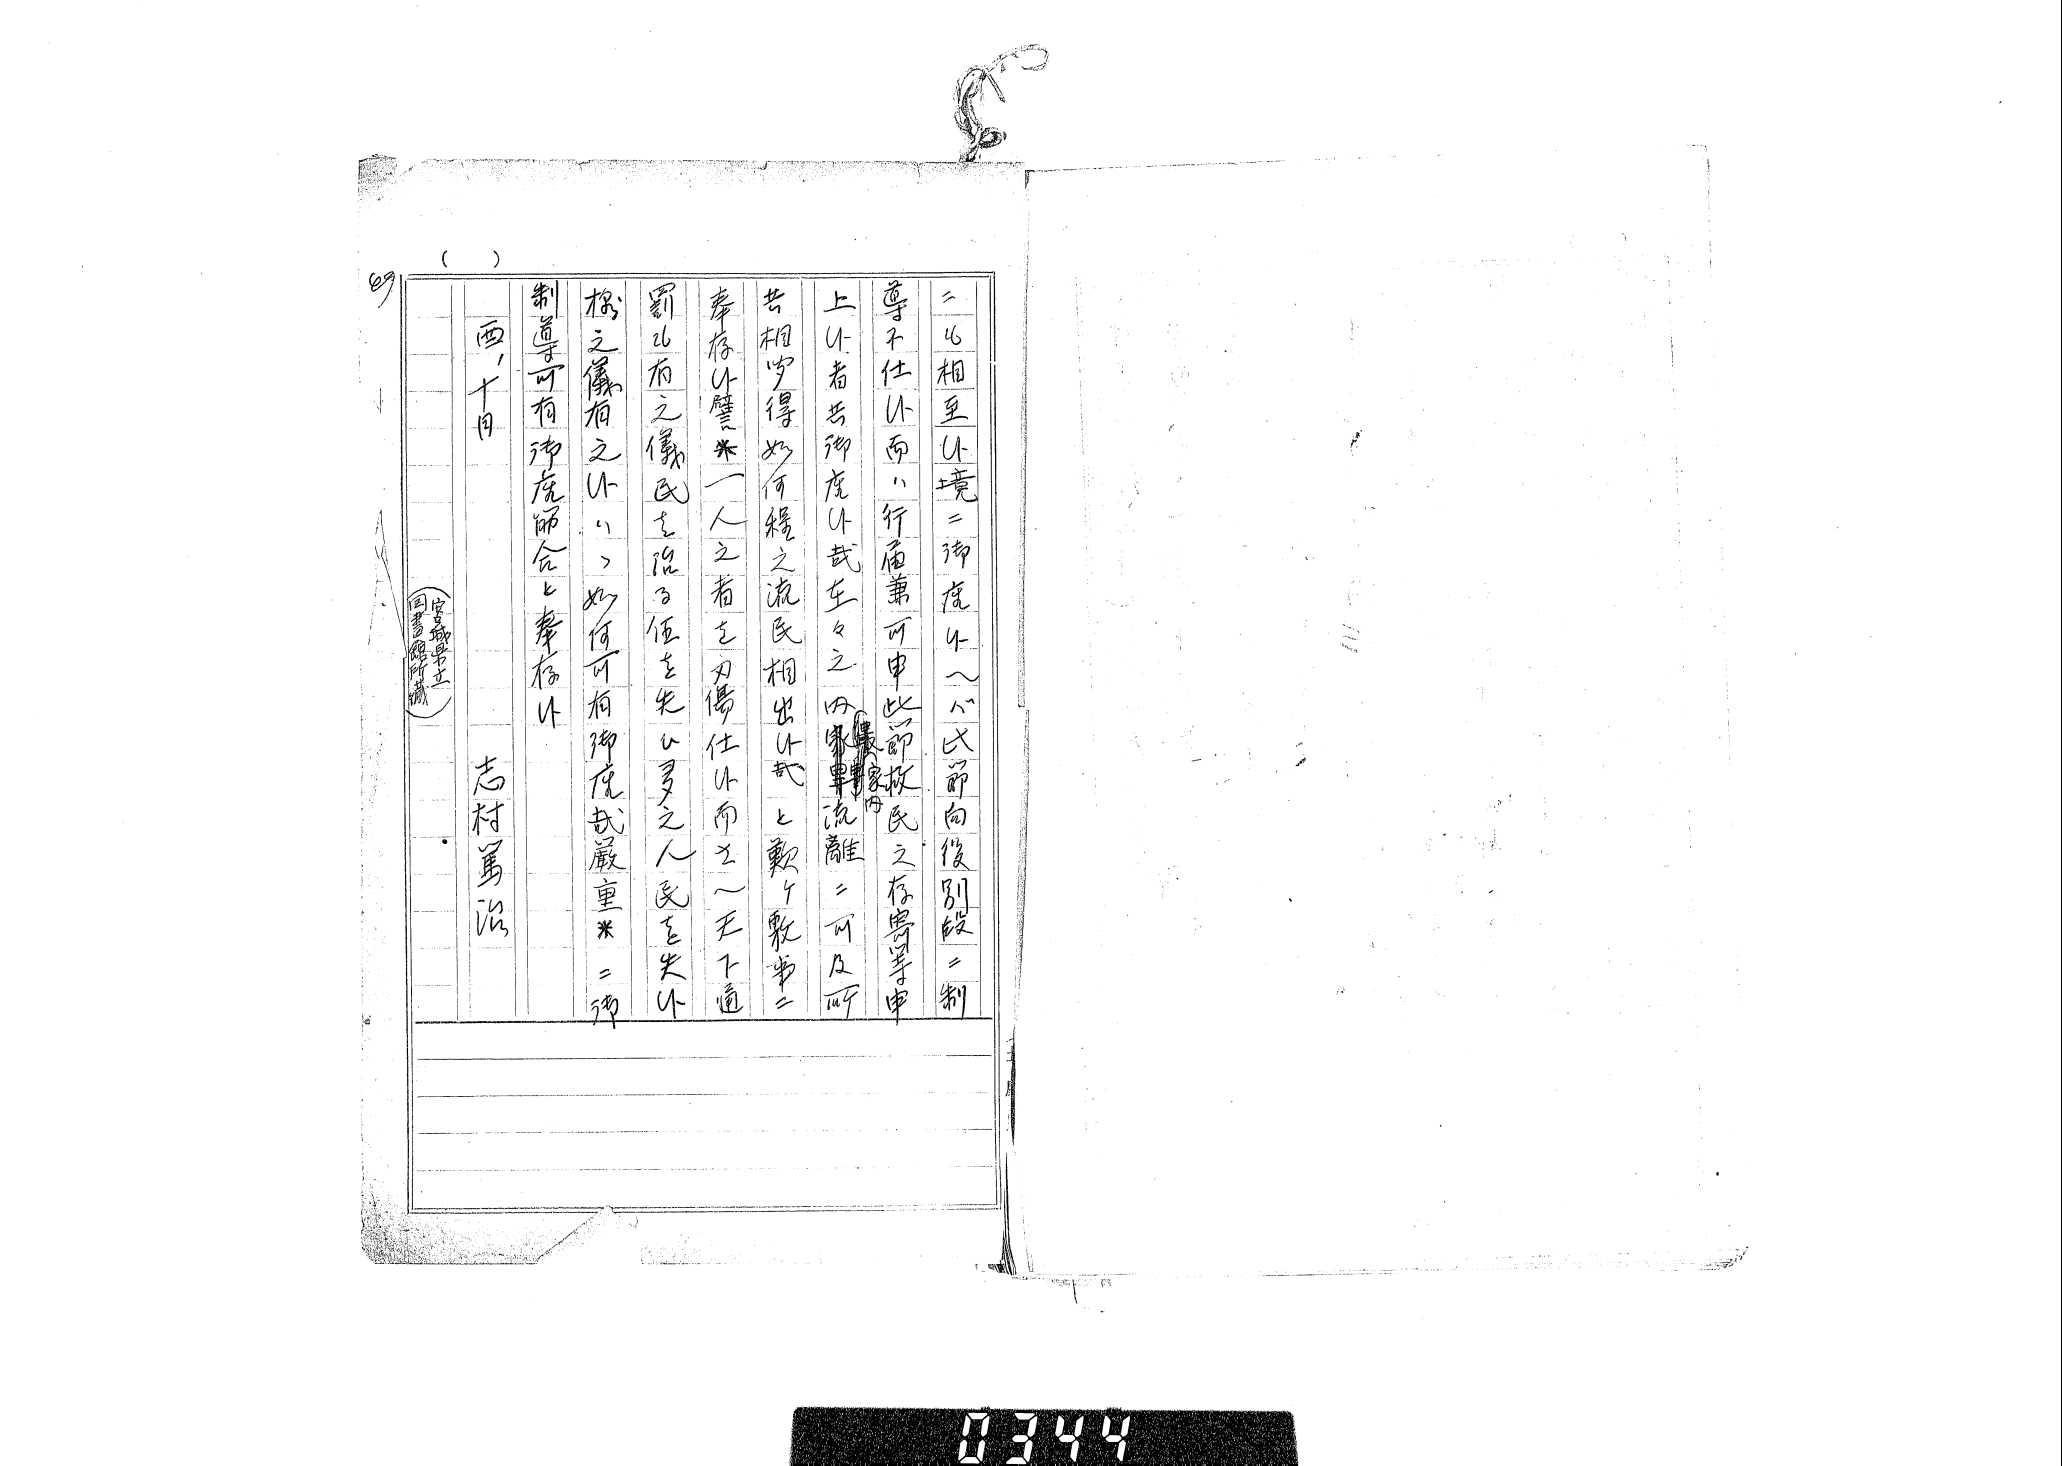 ニも相至候境ニ御座候へバ此節向役別段ニ制
導不仕候而ハ行届兼可申此節救民之存寄等申
上候者共御座候哉在々之内家内流離ニ可及所
共相字得如何程之流民相出候哉と歎ケ敷事ニ
奉存候譬※一人之者を刃傷仕候而さへ天下適
罰も有之儀民を治る伍を失ひ多之人民を失候
様之儀有之候ハヽ如何可有御座哉厳重※ニ御
制導可有御座筋合と奉存候
酉、十月
志村篤治
( )
69
宮城県立
図書館所蔵
0344